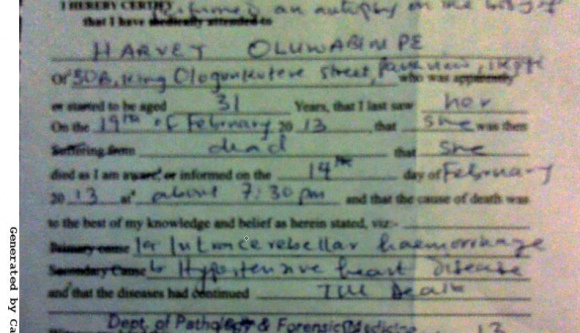 I HEREBY CERTIFY performed an autopsy on the body of
that I have medically attended to
HARVEY OLUWABUMI PE
Of 50B, King Ologunkutere Street, Parkview, Ikoyi who was apparently
or stated to be aged 31 Years, that I last saw her
On the 19th of February 20 13 that she was then
Suffering from dead that she
died as I am aware or informed on the 14th day of February
20 13 at about 7:30 pm and that the cause of death was
to the best of my knowledge and belief as herein stated, viz:-
Primary cause 1a Intracerebellar haemorrhage
Secondary Cause b Hypertensive heart disease
and that the diseases had continued Till Death
Dept. of Pathology & Forensic Medicine 13
Generated by Ca